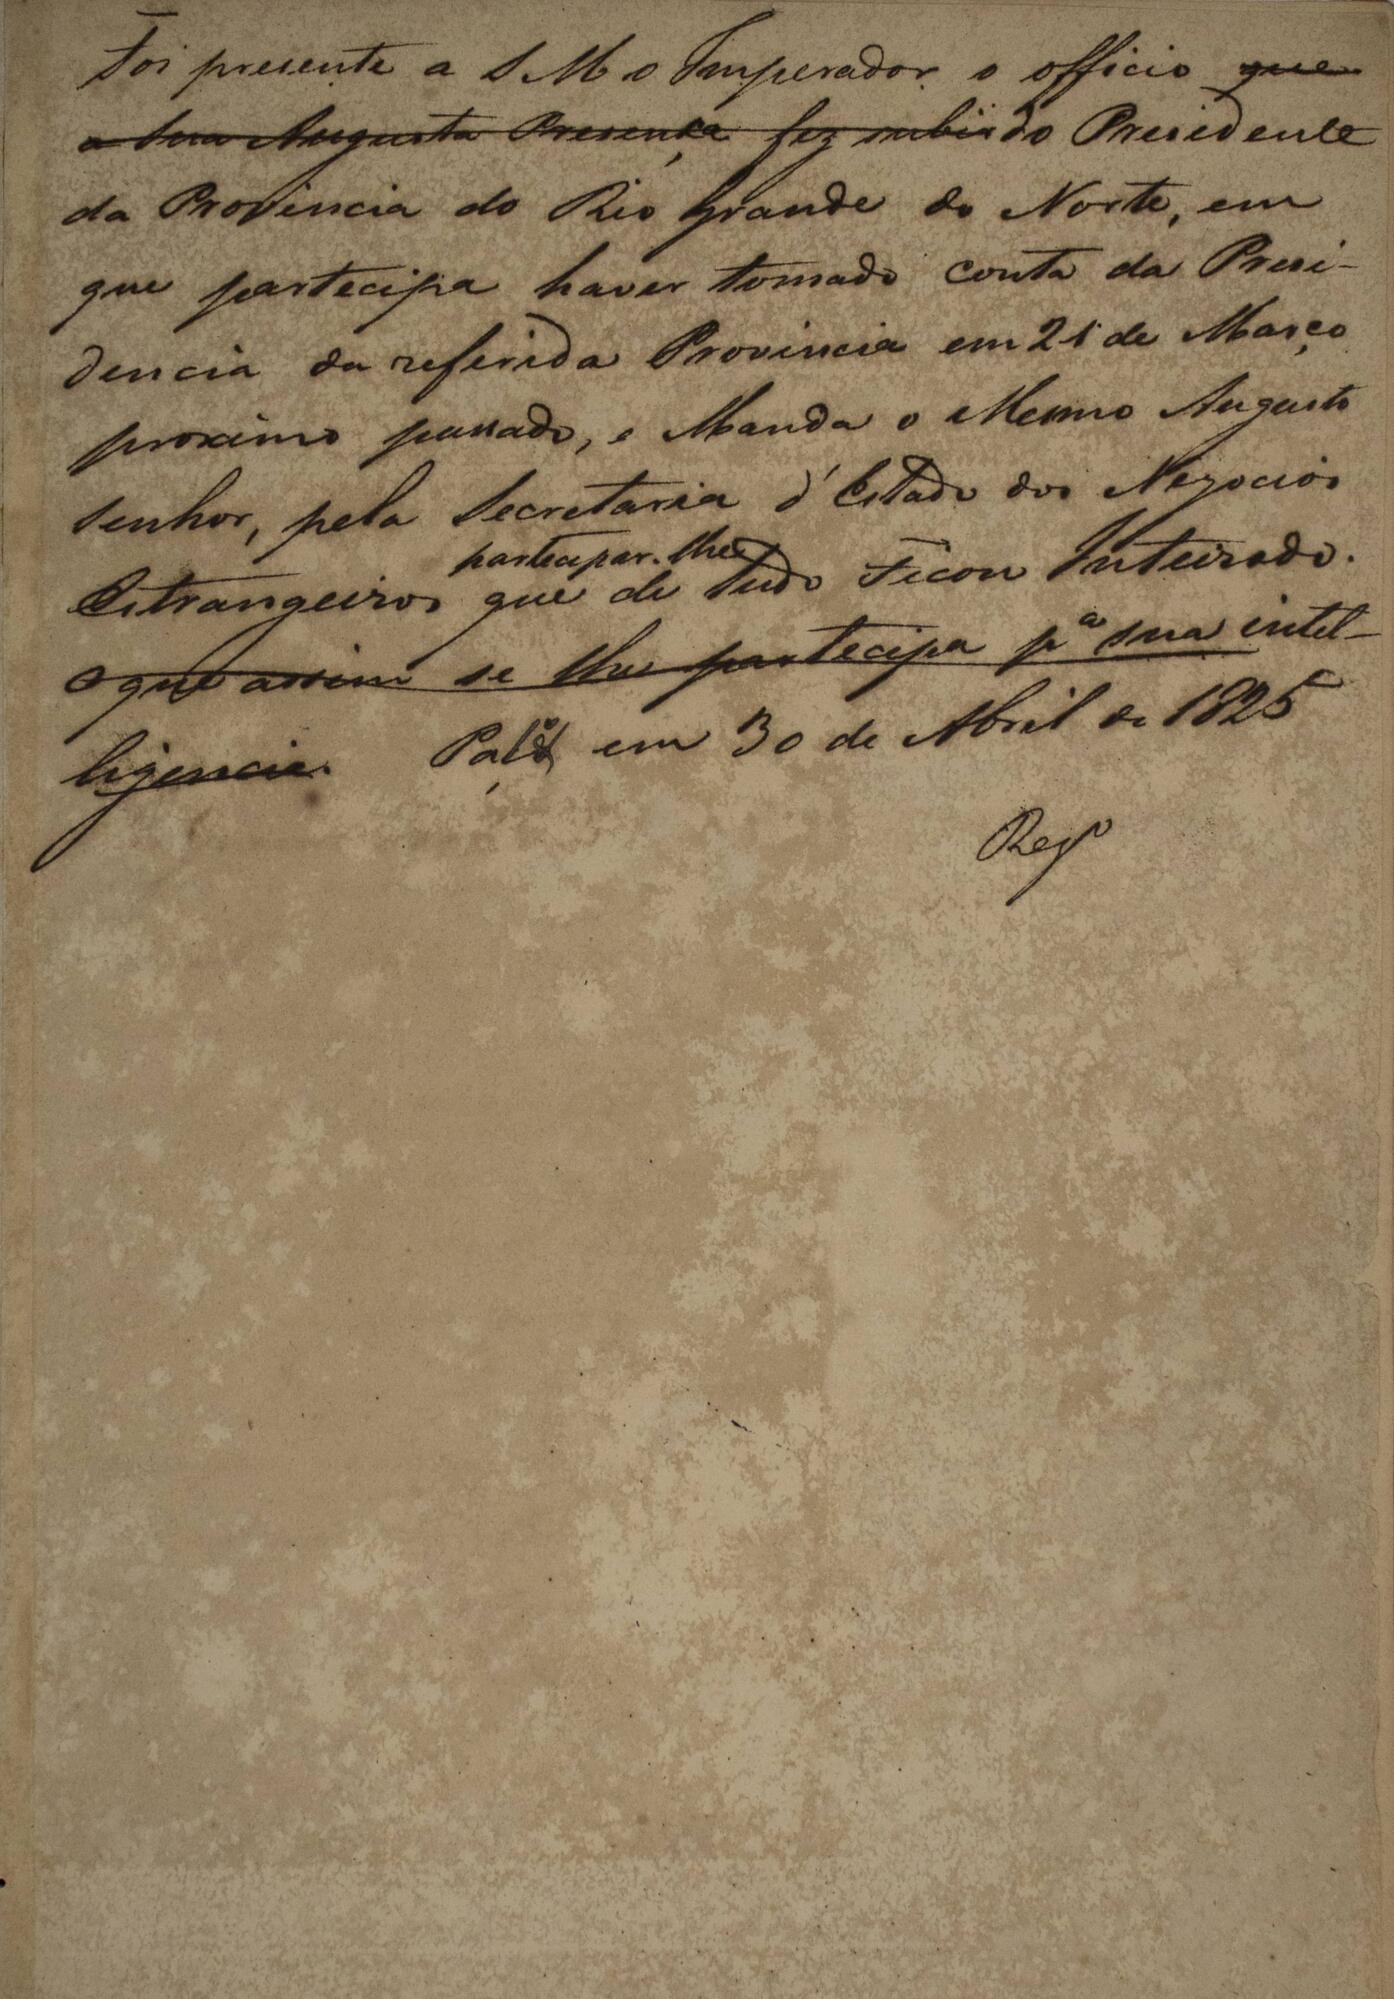 Foi presente a S M o Imperador o officio que
a Sua Augusta Presença fez subir do Presidente
da Provincia do Rio Grande do Norte, em
que partecipa haver tomado conta da Presi-
dencia da referida Provincia em 21 de Março
proximo passado, e Manda o Mesmo Augusto
Senhor, pela Secretaria d'Estado dos Negocios
partecipar-lhe
Estrangeiros que de tudo Ficou Inteirado.
O que assim se lhe partecipa pª sua intel-
ligencia. Palº em 30 de Abril de 1825
Regº